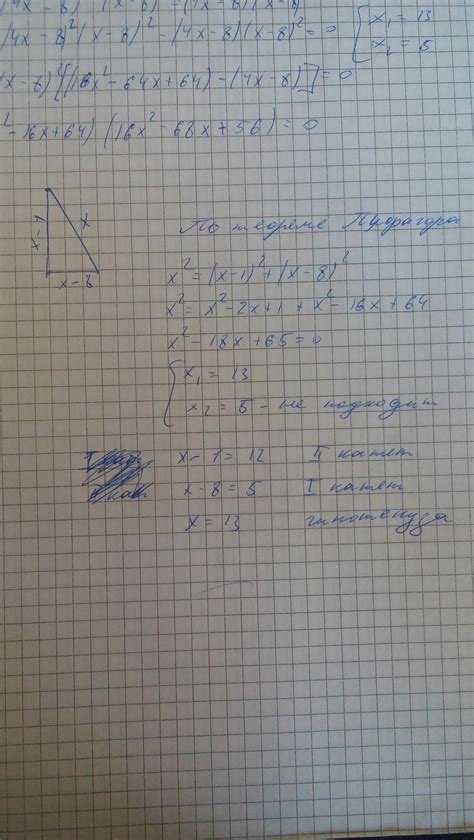 (4x-8)²(x-8)² - (4x-8)(x-8)² = 0
{ x₁ = 13
x₂ = 5
(x-8)²[(16x²-64x+64)-(4x-8)] = 0
²-16x+64)(16x²-68x+56) = 0
x-1
x
x-8
По теореме Пифагора
x² = (x-1)² + (x-8)²
x² = x²-2x+1 + x²-16x+64
x²-18x+65=0
{ x₁ = 13
x₂ = 5 - не подходит
x-1=12 II катет
x-8=5 I катет
x=13 гипотенуза